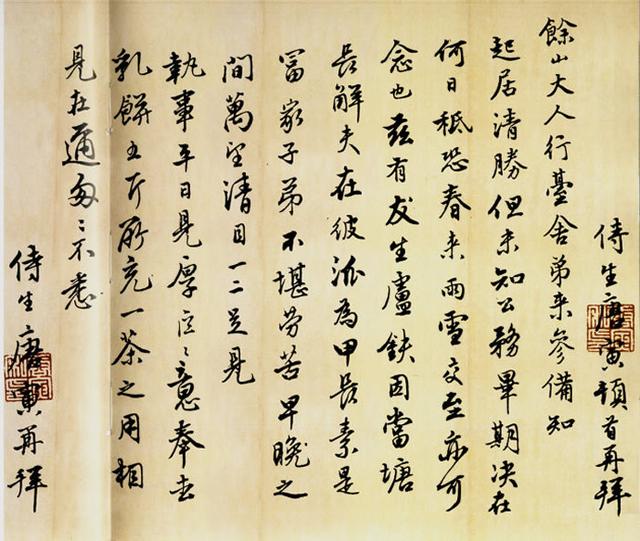 侍生唐寅頓首再拜
餘山大人行臺舍弟来參備知
起居清勝但未知公務畢期决在
何日秪恐春来雨雪交至亦可
念也兹有友生盧鈇因當塘
長解夫在彼派為甲長素是
冨家子弟不堪劳苦早晚之
間萬望清目一二足見
執事平日見厚區〻意奉去
乳餅五斤所充一茶之用相
見在邇匆〻不悉
侍生唐寅再拜